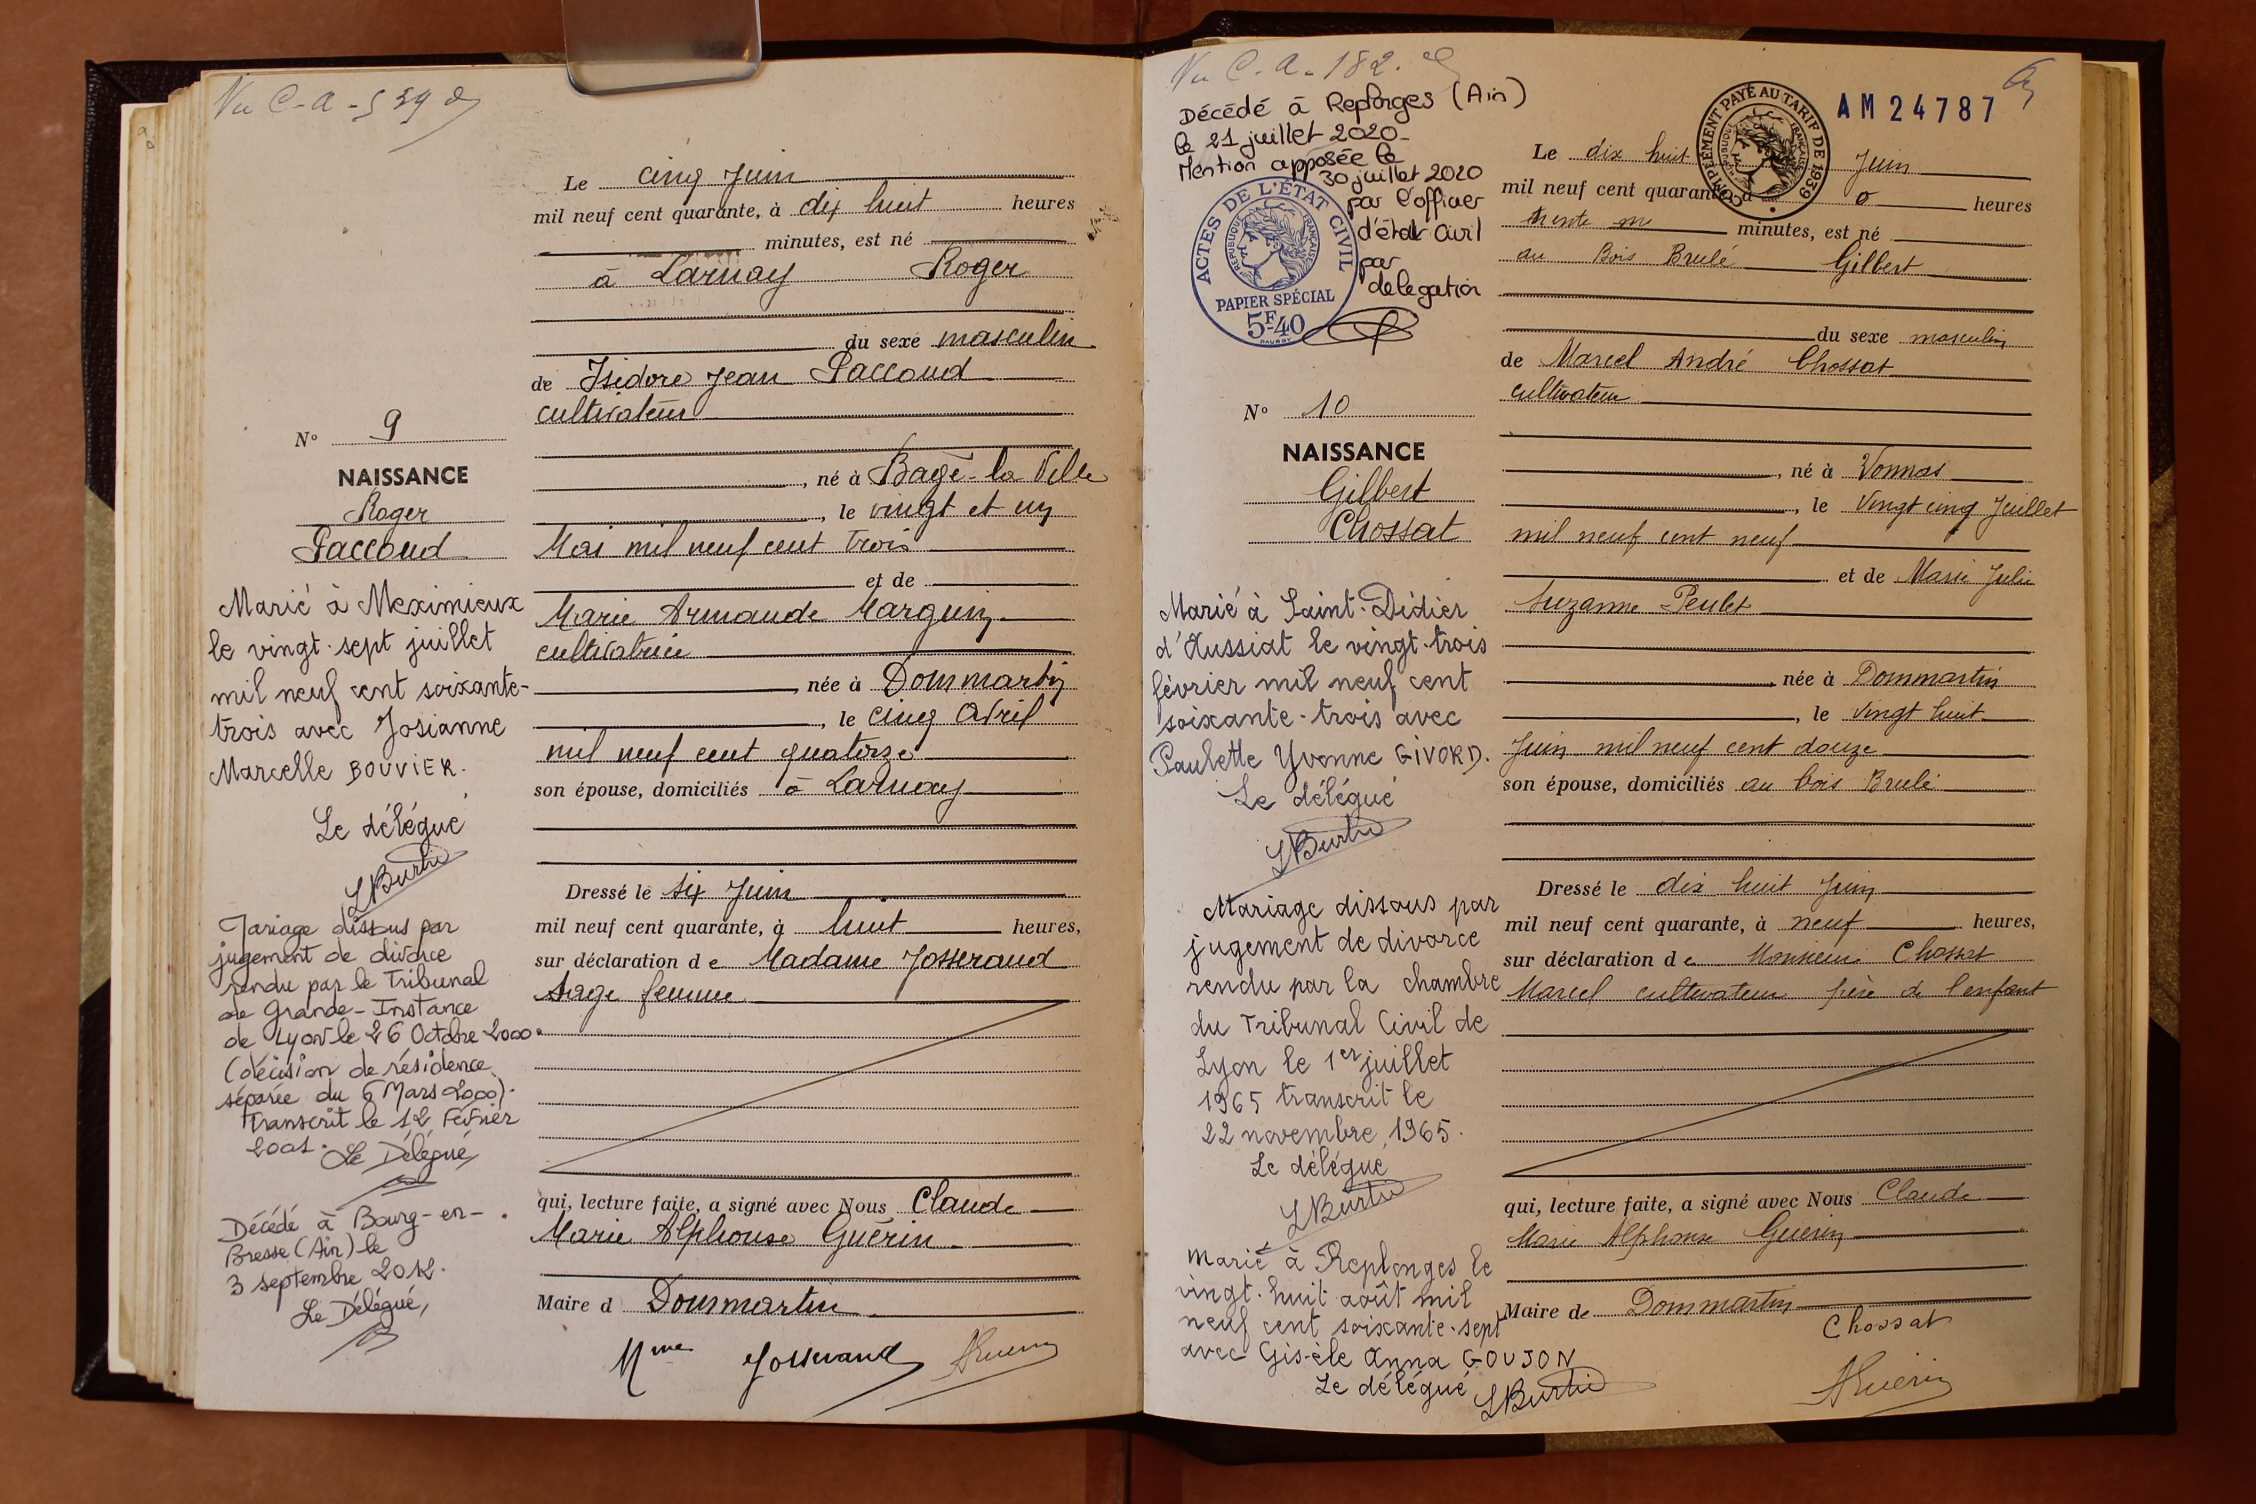 Vu C-A-539
Le cinq Juin
mil neuf cent quarante, à dix huit heures
minutes, est né
à Larnay Roger
du sexe masculin
de Isidore Jean Paccoud
cultivateur
né à Bagé-la Ville
, le vingt et un
Mai mil neuf cent trois
et de
Marie Armande Marguin
cultivatrice
née à Dommartin
, le cinq Avril
mil neuf cent quatorze
son épouse, domiciliés à Larnay
Dressé le six Juin
mil neuf cent quarante, à huit heures,
sur déclaration de Madame Josserand
sage femme
qui, lecture faite, a signé avec Nous Claude
Marie Alphonse Guérin
Maire d Dommartin
Mme Josserand AGuerin
N° 9
NAISSANCE
Roger
Paccoud
Marié à Meximieux
le vingt-sept juillet
mil neuf cent soixante-
trois avec Josianne
Marcelle BOUVIER.
Le délégué
LBurtin
Mariage dissous par
jugement de divorce
rendu par le Tribunal
de Grande-Instance
de Lyon le 26 Octobre 2000
(décision de résidence
séparée du 6 Mars 2000).
Transcrit le 12 Février
2001.
Le Délégué,
Décédé à Bourg-en-
Bresse (Ain) le
3 septembre 2012.
Le Délégué,
Vu C-A-182.
Décédé à Replonges (Ain)
le 21 juillet 2020-
Mention apposée le
30 juillet 2020
par l'officier
d'état civil
par
delegation
ACTES DE L'ÉTAT CIVIL
RÉPUBLIQUE FRANÇAISE
PAPIER SPÉCIAL
5F40
COMPLÉMENT PAYÉ AU TARIF DE 1939
RÉPUBLIQUE FRANÇAISE
AM24787
Le dix huit Juin
mil neuf cent quarante, à 0 heures
trente m minutes, est né
au Bois Brulé Gilbert
du sexe masculin
de Marcel André Chossat
cultivateur
, né à Vonnas
, le Vingt cinq Juillet
mil neuf cent neuf
et de Marie Julie
Suzanne Peulet
née à Dommartin
, le Vingt huit
Juin mil neuf cent douze
son épouse, domiciliés au bois Brulé
Dressé le dix huit Juin
mil neuf cent quarante, à neuf heures,
sur déclaration de Monsieur Chossat
Marcel cultivateur père de l'enfant
qui, lecture faite, a signé avec Nous Claude
Marie Alphonse Guerin
Maire de Dommartin
Chossat
AGuerin
N° 10
NAISSANCE
Gilbert
Chossat
Marié à Saint-Didier
d'Aussiat le vingt-trois
février mil neuf cent
soixante-trois avec
Paulette Yvonne GIVORD.
Le délégué
LBurtin
Mariage dissous par
jugement de divorce
rendu par la chambre
du Tribunal Civil de
Lyon le 1er juillet
1965 transcrit le
22 novembre 1965.
Le délégué
LBurtin
Marié à Replonges le
vingt-huit août mil
neuf cent soixante-sept
avec Gisèle Anna GOUJON
Le délégué LBurtin